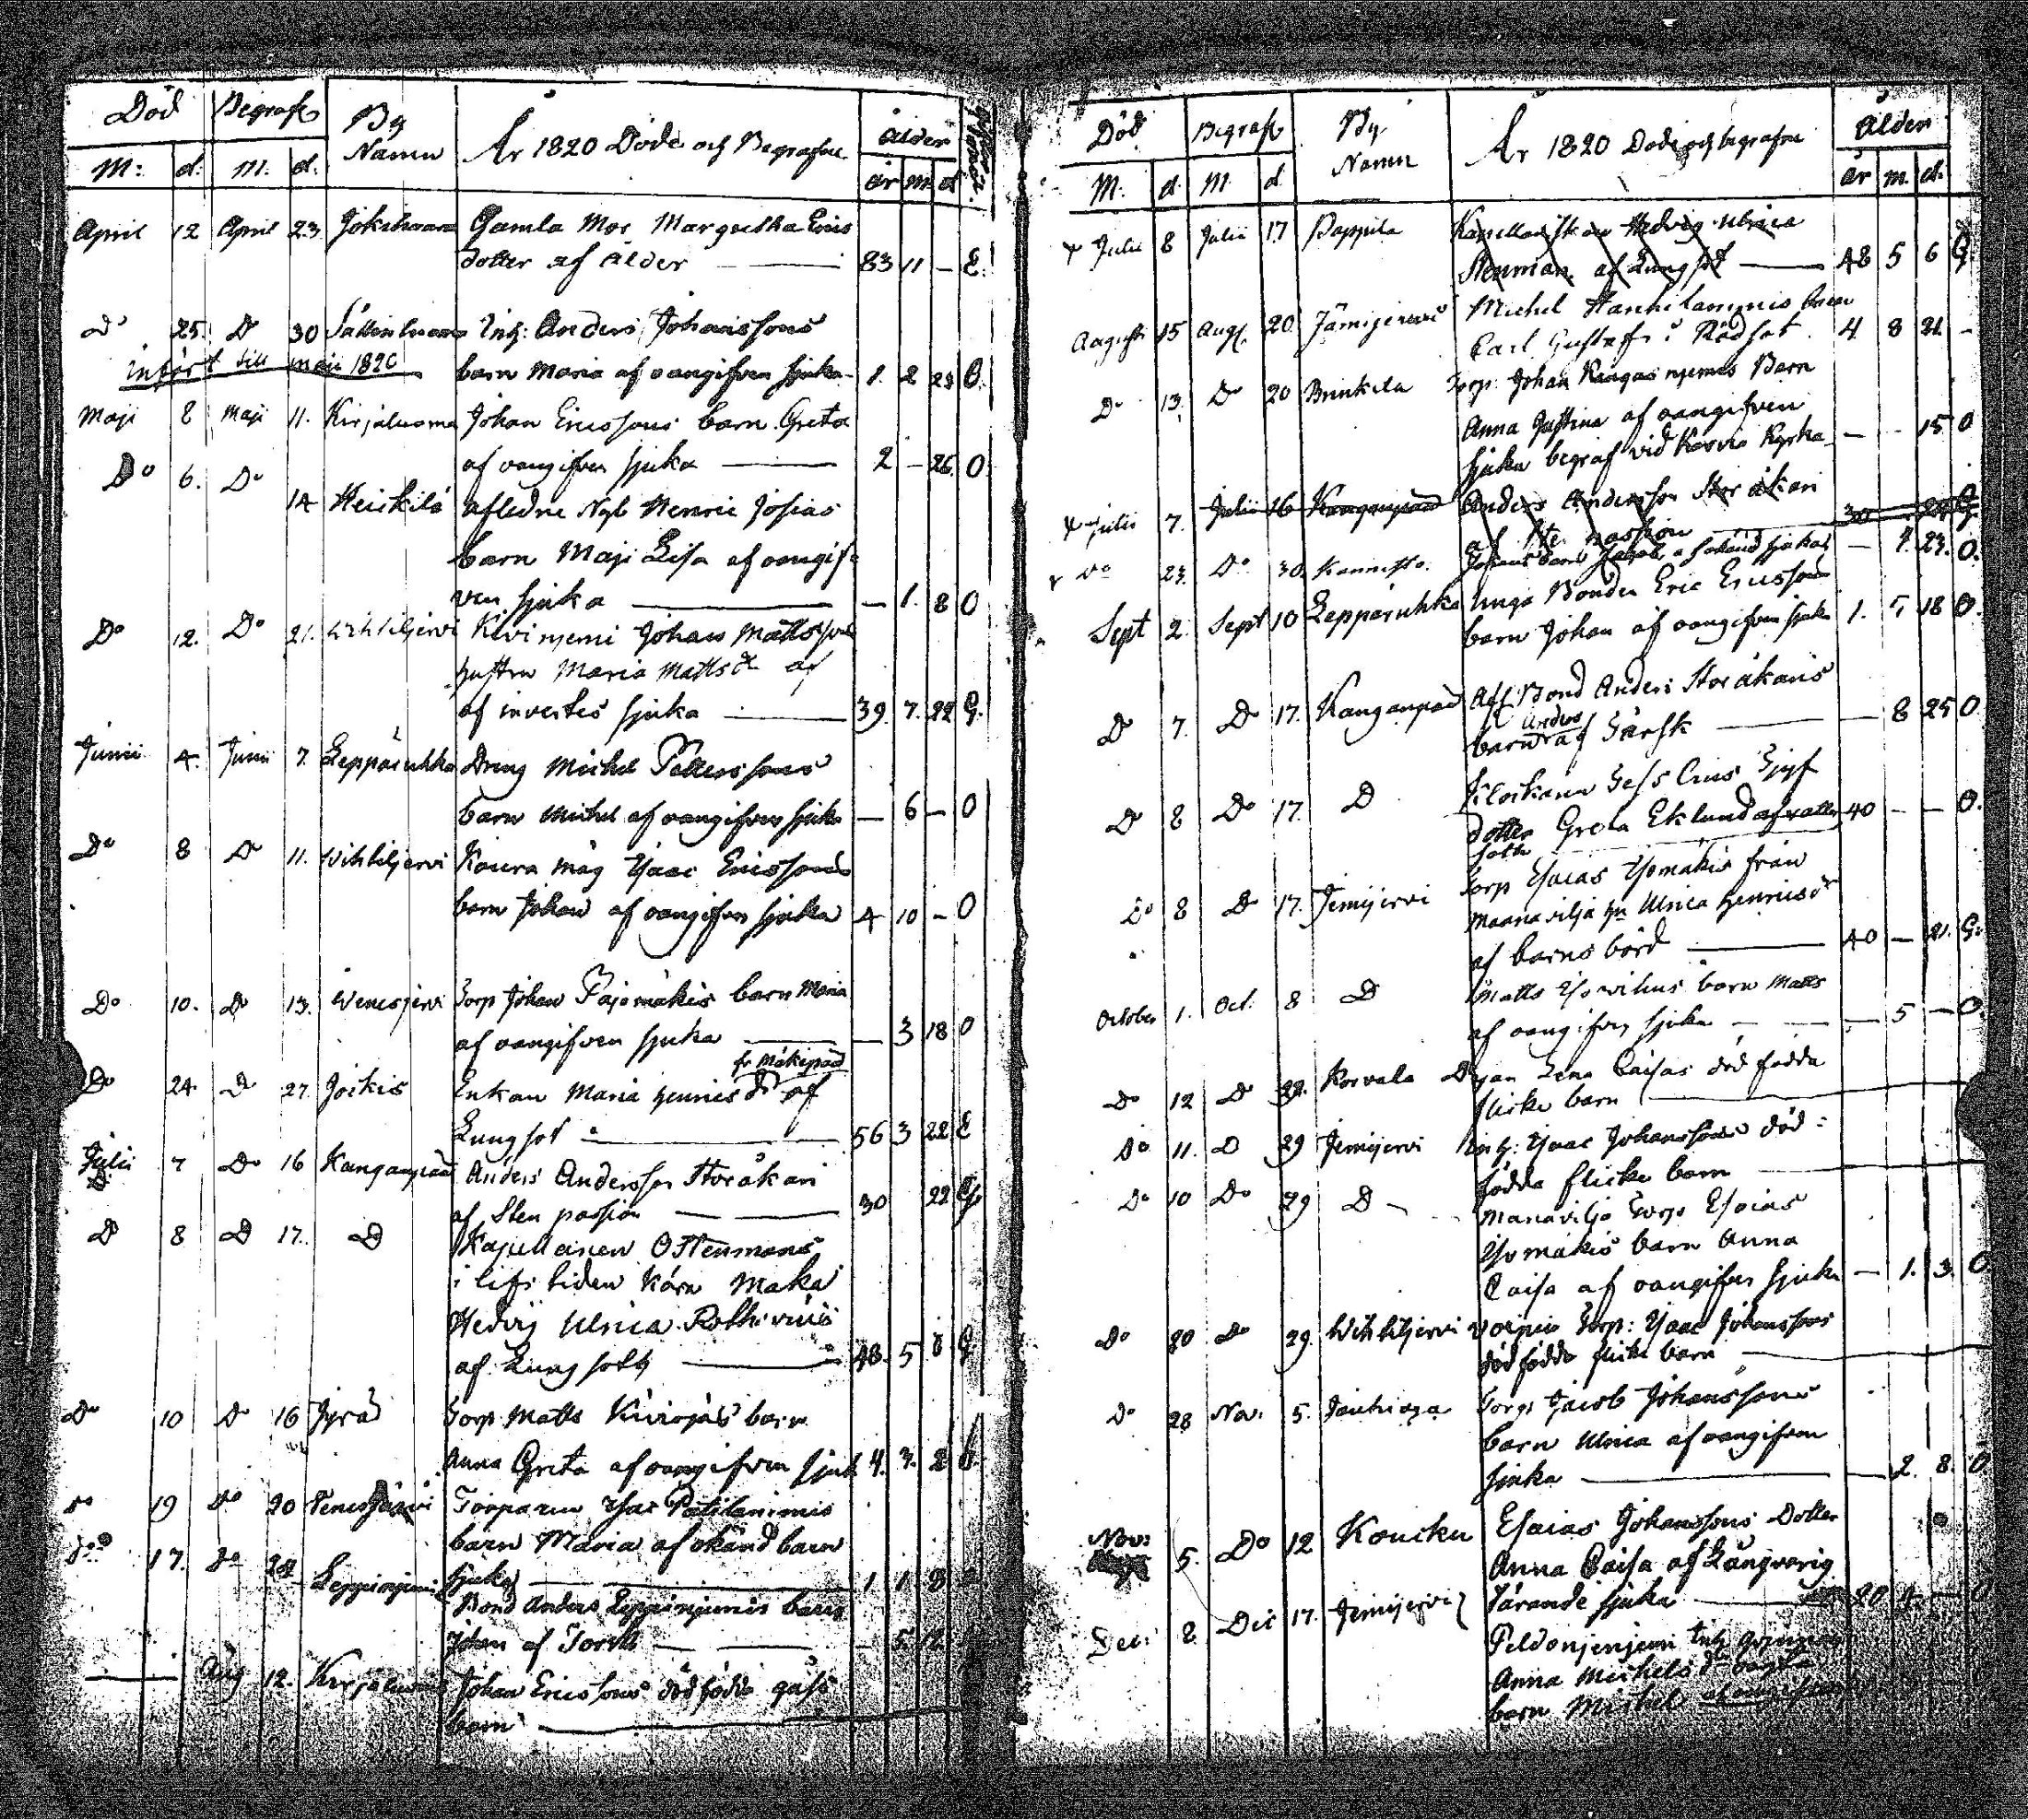 Död Begrafs By Namn År 1820 Döde och Begrafne Ålder
M: d: M. d. år m. d
April 12 April 23 Jokihaara Gamla Mor Margretha Erics
dotter af ålder — 83 11 — E.
D° 25. D° 30 Inh: Anders Johanssons
infört till maji 1820 barn Maria af oangifven sjuka 1. 2 23 O.
Maji 8 Maji 11. Kirjaluoma Johan Ericssons barn Greta
af oangifven sjuka — 2 — 26 O
D° 6. D° 14 Heickilä afledne Nyb Henric Josias
barn Maji Lisa af oangif-
ven sjuka — — 1. 8 O
D° 12. D° 21. Wihteljervi Kivinjemi Johan Mattssons
hustru Maria Matts d:r af
af invertes sjuka — 39. 7. 22 G.
Junii 4. Junii 7. Leppäruhka Dreng Michel Pettersssons
barn Michel af oangifven sjuka — 6 — O
D° 8 D° 11. Wihteljervi Koivra måg Isaac Ericssons
barn Johan af oangifven sjuka 4 10 — O
D° 10. D° 13. Wenesjervi Torp Johan Pajomäkis barn Maria
af oangifven sjuka — — 3 18 O
fr Mäkipää
D° 24. D° 27. Jockis Enkan Maria Henrics d:r af
Lungsot — 56 3 22 E
Julii 7 D° 16 Kanganpää Anders Andersson Storåkari
af Sten passion — 30 22 G
D° 8 D° 17. D° Kapellanen O Stenmans
i lifs tiden kära Maka
Hedvig Ulrica Rothovius
af Lungsoth — 48. 5 6 G
D° 10 D° 16 Jyrä Torp Matts Kuirojas barn
Anna Greta af oangifven sjuk 4. 3. 2 O
D° 19 D° 20 Venesjärvi Torparen Isac
barn Maria af okänd barn
sjuka — 1 1 8
D° 17. D° Leppinjemi Bond Anders Leppinjemis barn
Johan af Torsk — — 5 12
— Aug 12. Kirjaluoma Johan Ericssons dödfödde gåss
barn —
Död Begrafs By Namn År 1820 Döde och begrafne Ålder
M. d. M. d år m. d.
+ Julii 8 Julii 17 Pappila Kapellanskan Hedvig Ulrica
Stenman af Lungsot — 48 5 6 G
Augusti 15 Augs. 20 Jämijervi Michel Hanhilammis barn
Carl Gustaf Rödsot 4 8 21 —
D° 13. D° 20 Brinkila Torp. Johan Kangasnjemis Barn
Anna Justina af oangifven
sjuka begraf vid Karvia Kyrka — - 15 O
+ Julii 7. Julii 16 Kanganpää Anders Andersson Storåkari
af Sten passion — 30 22 G.
+ D° 23. D° 30. Kannisto Johans barn Jacob a okänd sjuka — 1. 23. O.
Sept 2. Sept 10 Leppäruhka Unga Bonden Eric Ericssons
barn Johan af oangifven sjuka 1. 5 18 O.
D° 7. D° 17. Kanganpää Afl. Bond Anders Storåkaris
barn Anders af Tärsk — — 8 25 O
D° 8 D° 17. D° Klockaren Gos
dotter Greta Eklund af vatten 40 — — O.
soth
D° 8 D° 17. Jemijervi Torp Esaias Isomäkis från
Maanavilja hu Ulrica Henricsd:r
af barns börd — 40 — 21. G.
October 1. Oct. 8 D° Matts barn Matts
af oangifven sjuka — — — 5 — O.
D° 12 D° 22. Korvala Pijan Lena Caisas död födda
flicke barn —
D° 11. D° 29 Jemijervi Inh: Isaac Johanssons död-
födda flicke barn —
D° 10 D° 29 D° Manavilja Torp Esaias
Isomäkis barn Anna
Caisa af oangifven sjuka — 1. 3. O
D° 20 D° 29. Wihteljervi Torp: Isaac Johanssons
dödfödda flicke barn —
D° 28 Nov. 5. Torp Jacob Johanssons
barn Ulrica af oangifven
sjuka — — 2. 8. O
Nov: 5. D° 12 Koucku Esaias Johanssons Dotter
Anna Caisa af Långvarig
Tärande sjuka — 20 4 — O
Dec: 2. Dec 17. Jemijervi
Anna Michelsd:r
barn Michel